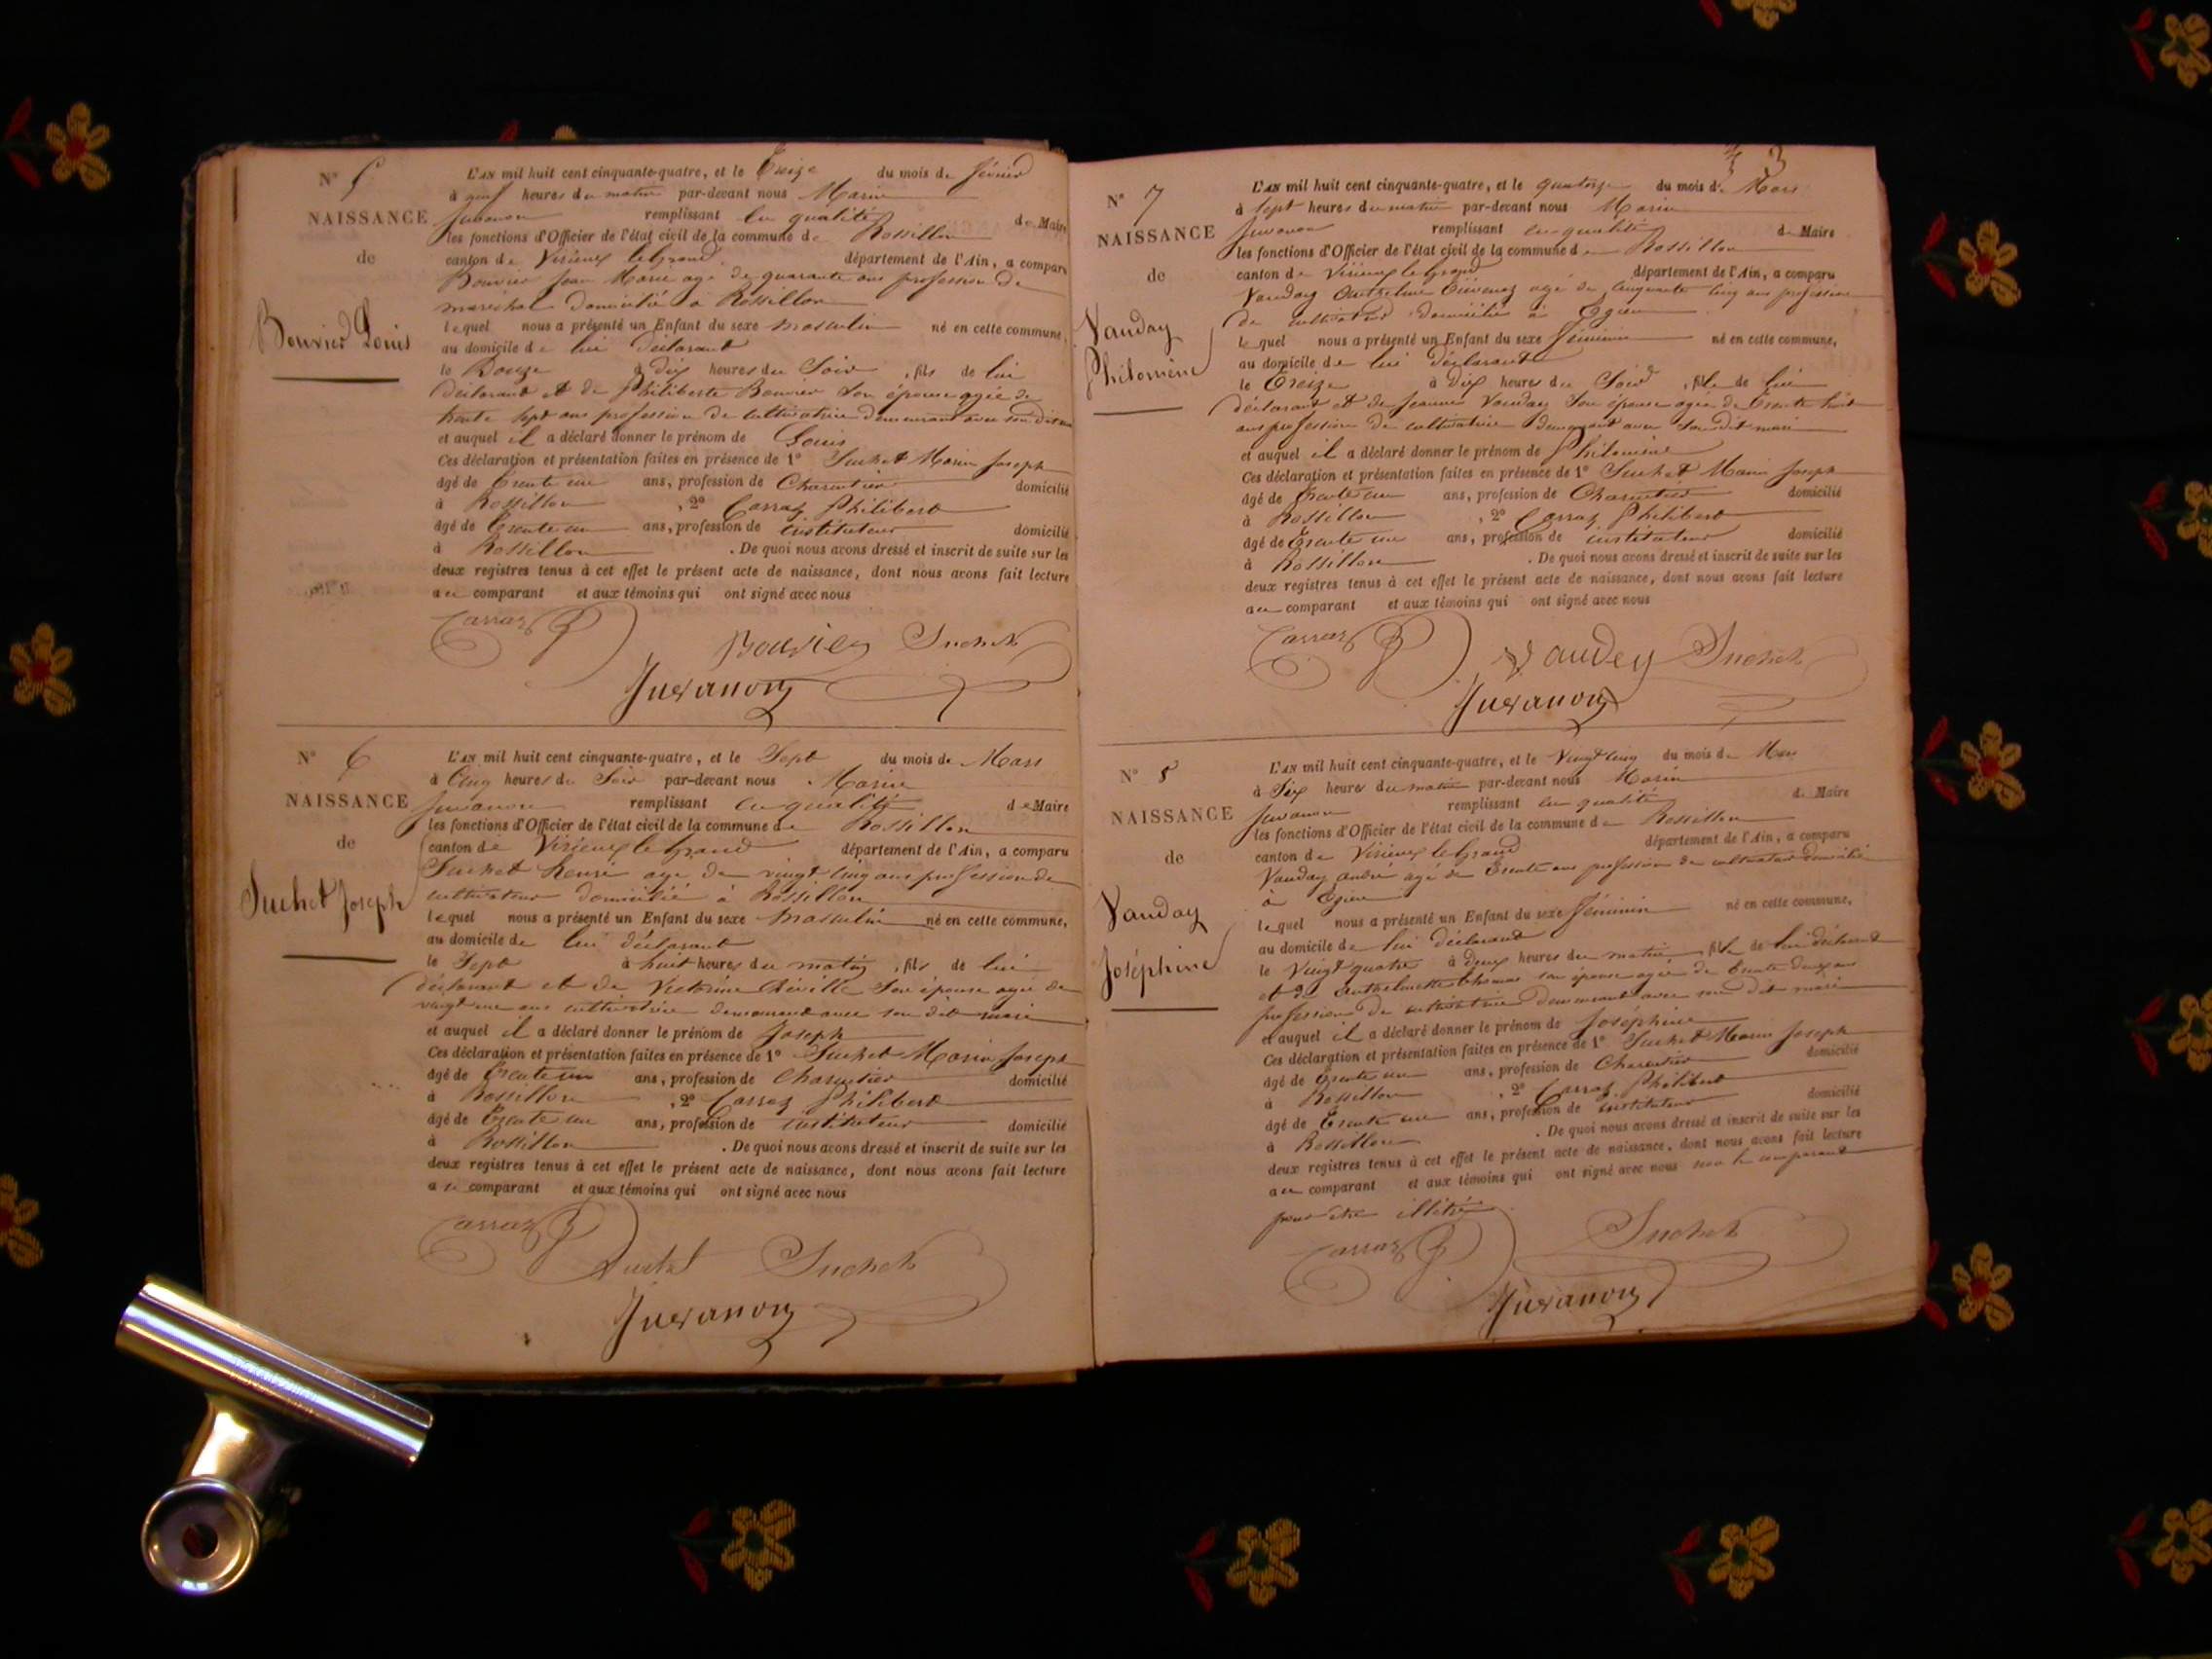 N° 5
NAISSANCE
de
Bouvier Louis
L'AN mil huit cent cinquante-quatre, et le treize du mois de février
à neuf heures du matin par-devant nous Marin
Juvanon remplissant en qualité de Maire
les fonctions d'Officier de l'état civil de la commune de Rossillon
canton de Virieux le Grand département de l'Ain, a comparu
Bouvier Jean Marie agé de quarante ans profession de
maréchal domicilié à Rossillon
lequel nous a présenté un Enfant du sexe masculin né en cette commune,
au domicile de lui déclarant
le Douze à dix heures du Soir, fils de lui
déclarant et de Philiberte Bouvier son épouse agée de
trente sept ans profession de cultivatrice demeurant avec son dit
et auquel il a déclaré donner le prénom de Louis
Ces déclaration et présentation faites en présence de 1° Suchet Marin Joseph
âgé de trente un ans, profession de Charpentier domicilié
à Rossillon, 2° Carraz Philibert
âgé de trente un ans, profession de instituteur domicilié
à Rossillon. De quoi nous avons dressé et inscrit de suite sur les
deux registres tenus à cet effet le présent acte de naissance, dont nous avons fait lecture
au comparant et aux témoins qui ont signé avec nous
Carraz Bouvier Suchet
Juvanon
N° 6
NAISSANCE
de
Suchet Joseph
L'AN mil huit cent cinquante-quatre, et le Sept du mois de Mars
à Cinq heures du Soir par-devant nous Marin
Juvanon remplissant en qualité de Maire
les fonctions d'Officier de l'état civil de la commune de Rossillon
canton de Virieux le Grand département de l'Ain, a comparu
Suchet agé de vingt cinq ans profession de
cultivateur domicilié à Rossillon
lequel nous a présenté un Enfant du sexe masculin né en cette commune,
au domicile de lui déclarant
le Sept à huit heures du matin, fils de lui
déclarant et de Victorine son épouse agée de
vingt un ans cultivatrice demeurant avec son dit mari
et auquel il a déclaré donner le prénom de Joseph
Ces déclaration et présentation faites en présence de 1° Suchet Marin Joseph
âgé de trente un ans, profession de Charpentier domicilié
à Rossillon, 2° Carraz Philibert
âgé de trente un ans, profession de instituteur domicilié
à Rossillon. De quoi nous avons dressé et inscrit de suite sur les
deux registres tenus à cet effet le présent acte de naissance, dont nous avons fait lecture
au comparant et aux témoins qui ont signé avec nous
Carraz Suchet
Juvanon
3
N° 7
NAISSANCE
de
Vauday
Philomène
L'AN mil huit cent cinquante-quatre, et le quatorze du mois de Mars
à sept heures du matin par-devant nous Marin
Juvanon remplissant en qualité de Maire
les fonctions d'Officier de l'état civil de la commune de Rossillon
canton de Virieux le Grand département de l'Ain, a comparu
Vauday Anthelme agé de cinquante cinq ans profession
de cultivateur domicilié à Egieu
lequel nous a présenté un Enfant du sexe féminin né en cette commune,
au domicile de lui déclarant
le treize à dix heures du Soir, fille de lui
déclarant et de Jeanne Vauday son épouse agée de trente huit
ans profession de cultivatrice demeurant avec son dit mari
et auquel il a déclaré donner le prénom de Philomène
Ces déclaration et présentation faites en présence de 1° Suchet Marin Joseph
âgé de trente un ans, profession de Charpentier domicilié
à Rossillon, 2° Carraz Philibert
âgé de trente un ans, profession de instituteur domicilié
à Rossillon. De quoi nous avons dressé et inscrit de suite sur les
deux registres tenus à cet effet le présent acte de naissance, dont nous avons fait lecture
au comparant et aux témoins qui ont signé avec nous
Carraz Vaudey Suchet
Juvanon
N° 8
NAISSANCE
de
Vauday
Joséphine
L'AN mil huit cent cinquante-quatre, et le vingt cinq du mois de Mars
à Six heures du matin par-devant nous Marin
Juvanon remplissant en qualité de Maire
les fonctions d'Officier de l'état civil de la commune de Rossillon
canton de Virieux le Grand département de l'Ain, a comparu
Vauday andré agé de trente ans profession de cultivateur domicilié
à Egieu
lequel nous a présenté un Enfant du sexe féminin né en cette commune,
au domicile de lui déclarant
le vingt quatre à deux heures du matin, fille de lui déclarant
et de Anthelmette Thomas son épouse agée de trente deux ans
profession de cultivatrice demeurant avec son dit mari
et auquel il a déclaré donner le prénom de Joséphine
Ces déclaration et présentation faites en présence de 1° Suchet Marin Joseph
âgé de trente un ans, profession de Charpentier domicilié
à Rossillon, 2° Carraz Philibert
âgé de trente un ans, profession de instituteur domicilié
à Rossillon. De quoi nous avons dressé et inscrit de suite sur les
deux registres tenus à cet effet le présent acte de naissance, dont nous avons fait lecture
au comparant et aux témoins qui ont signé avec nous non le comparant
pour être illitré
Carraz Suchet
Juvanon